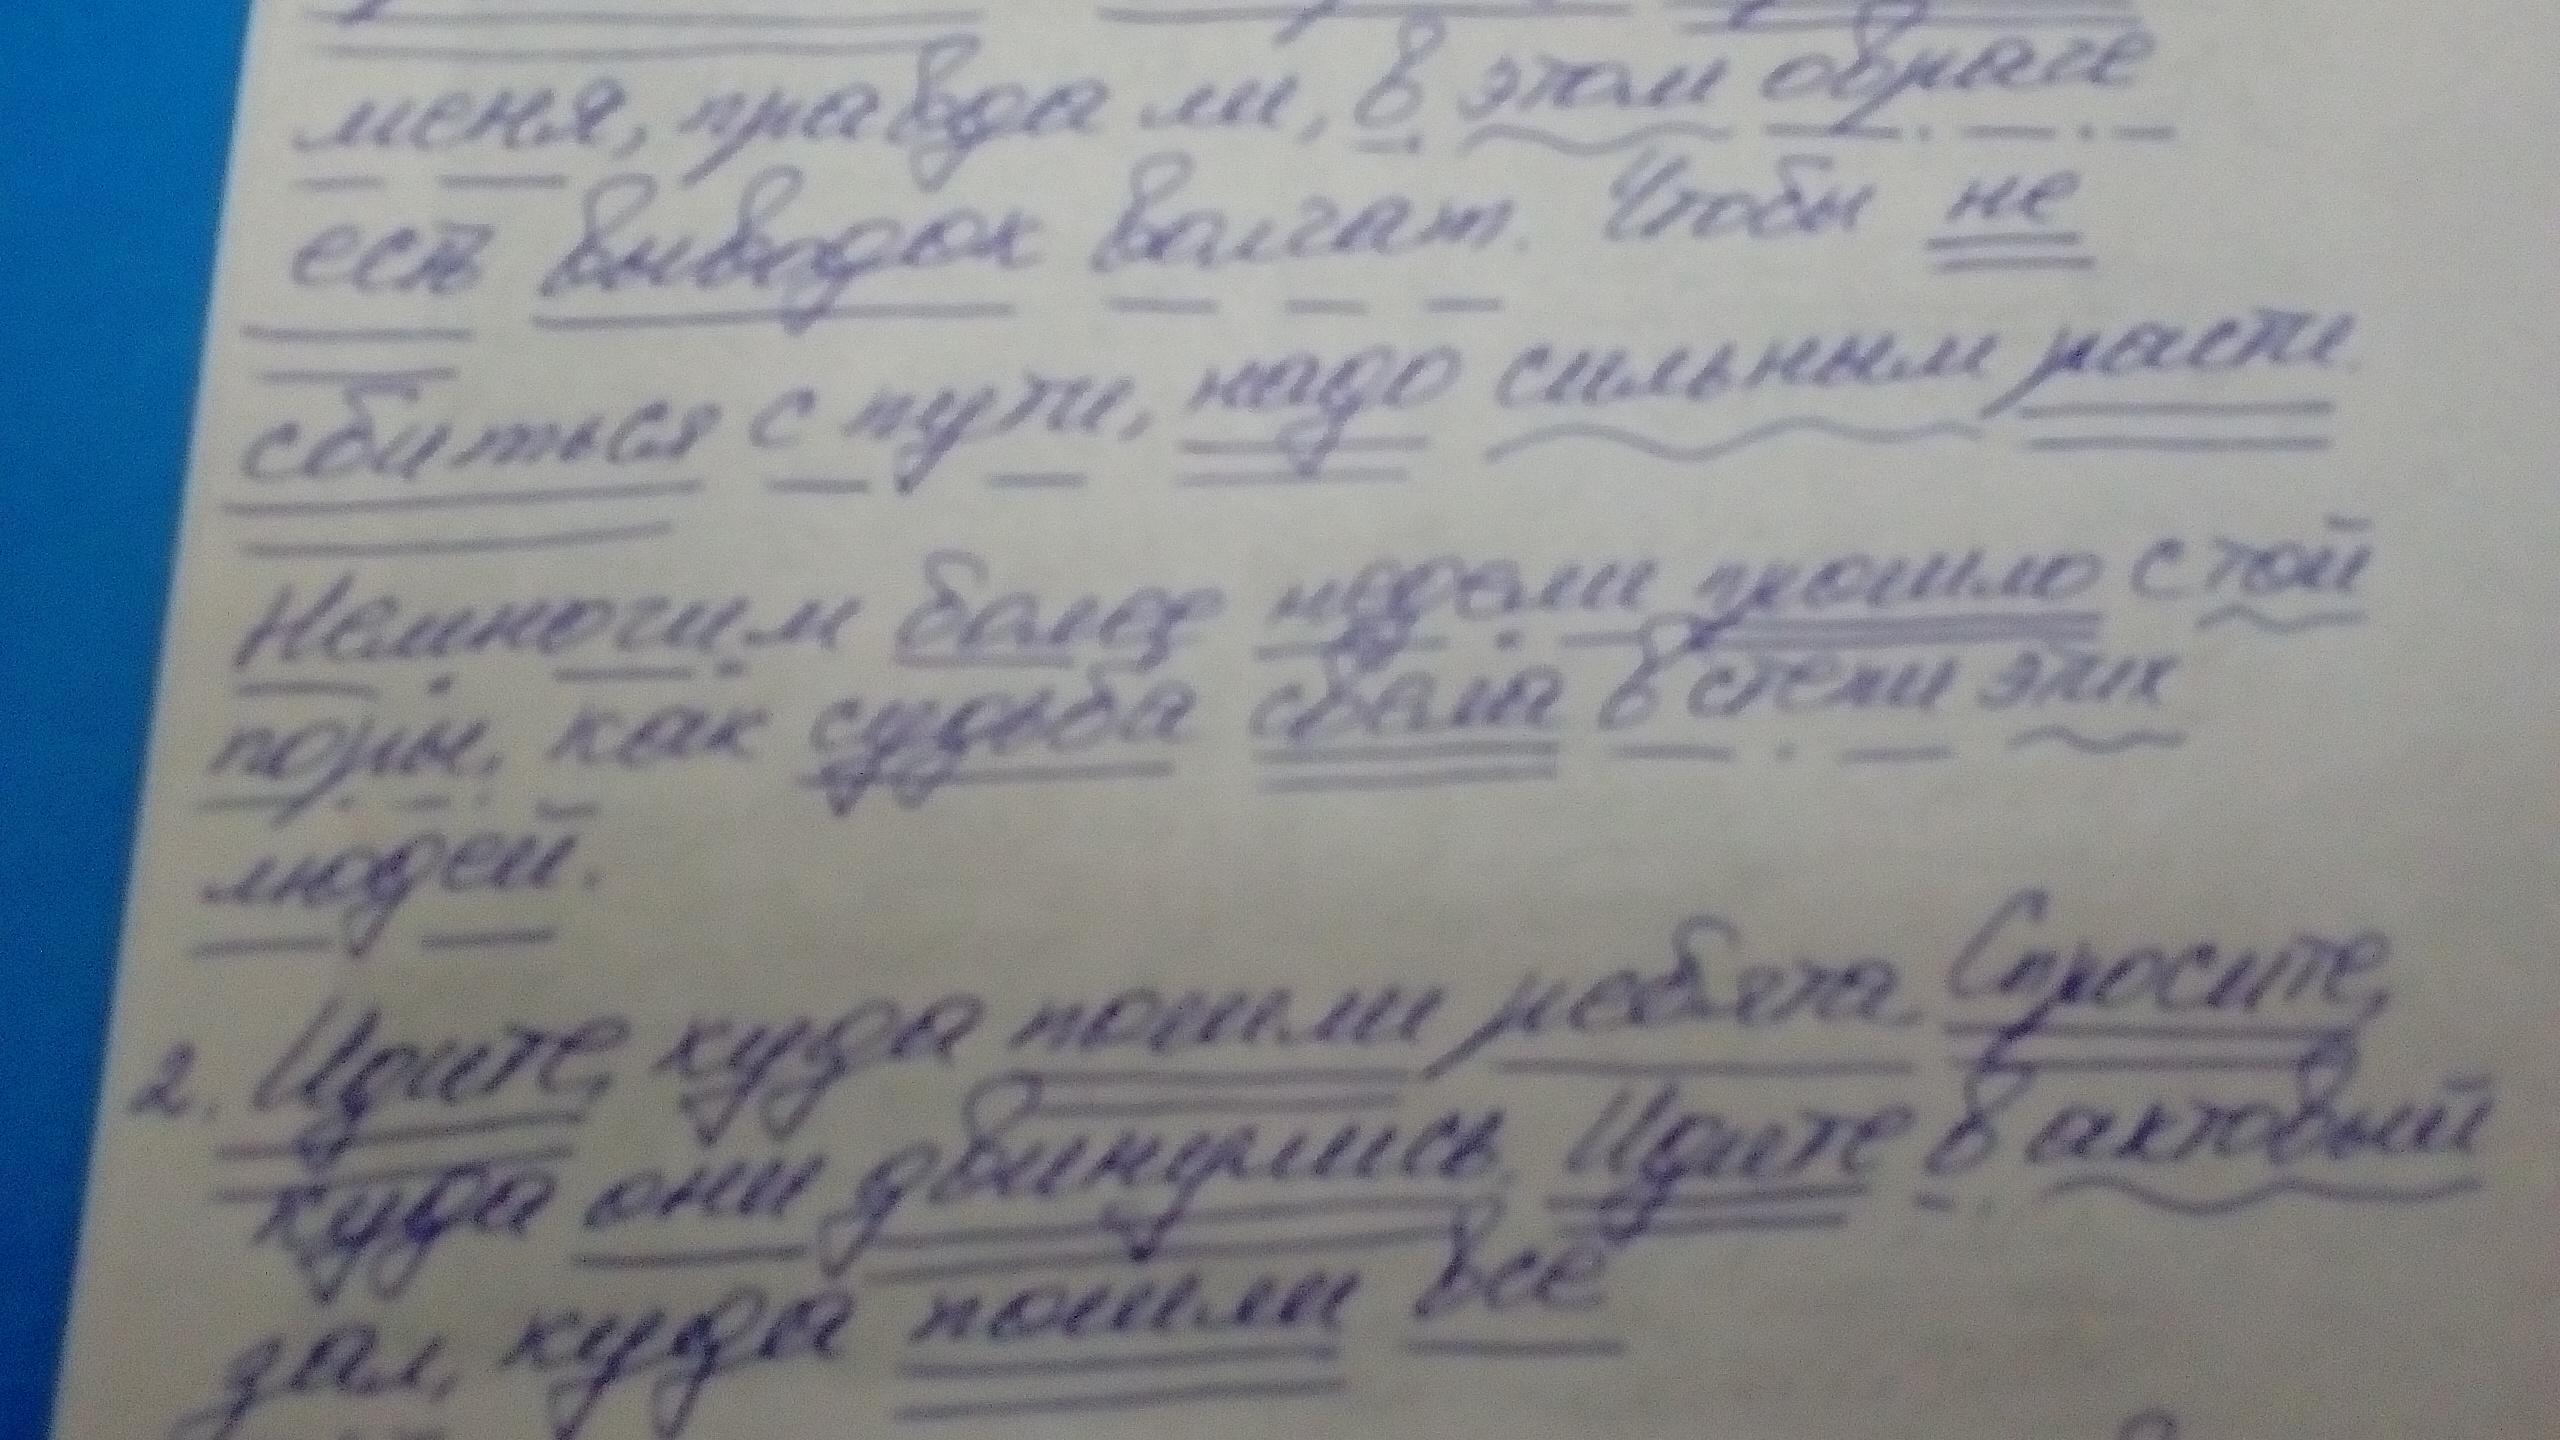 меня, правда ли, в этом овраге
есть выводок волчат. Чтобы не
сбиться с пути, надо сильным расти.
Немногим более недели прошло с той
поры, как судьба свела в степи этих
людей.
2. Идите, куда пошли ребята. Спросите,
куда они двинулись. Идите в актовый
зал, куда пошли все